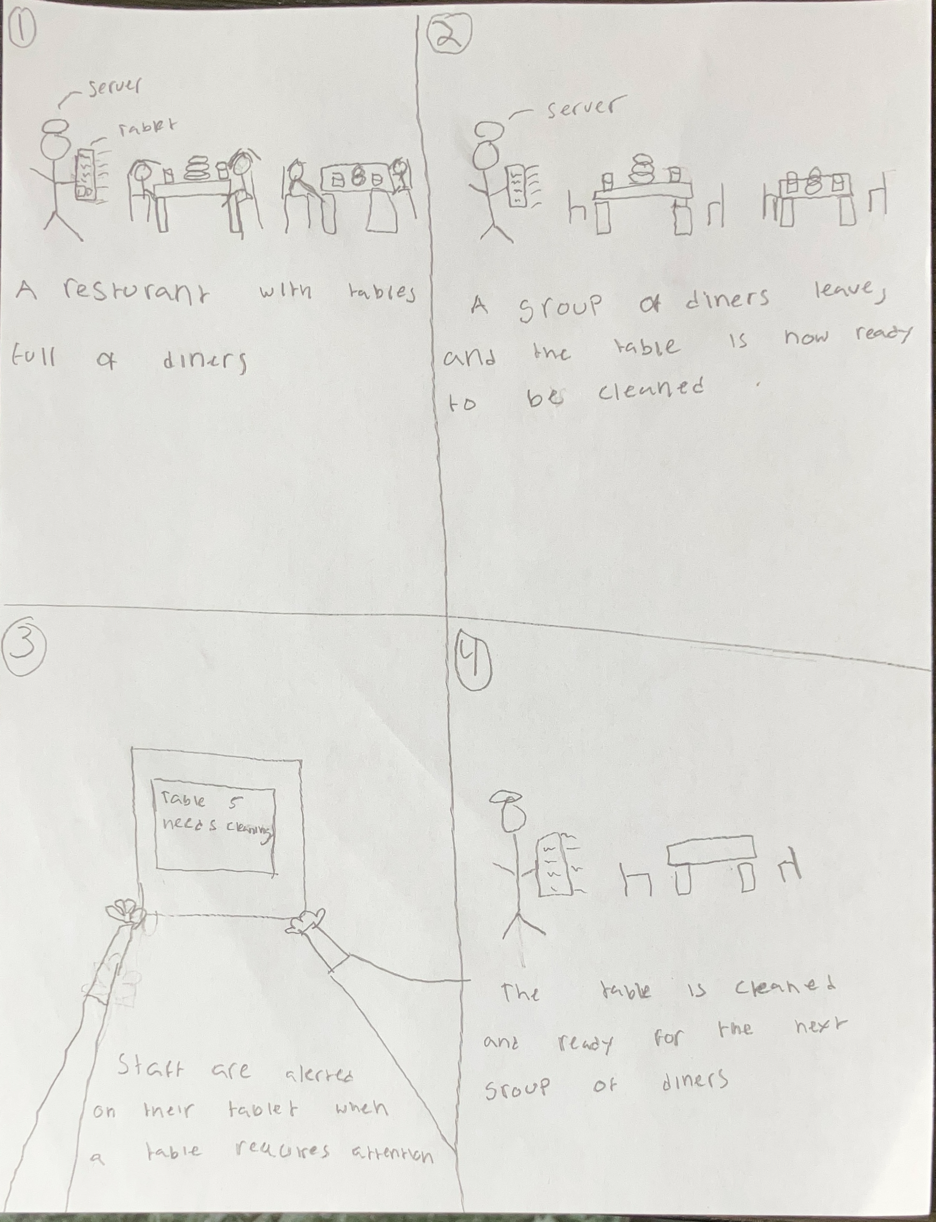 1
server
tablet
A resturant with tables
full of diners
2
server
A group of diners leave,
and the table is now ready
to be cleaned
3
Table 5
needs cleaning
Staff are alerted
on their tablet when
a table requires attention
4
The table is cleaned
and ready for the next
group of diners